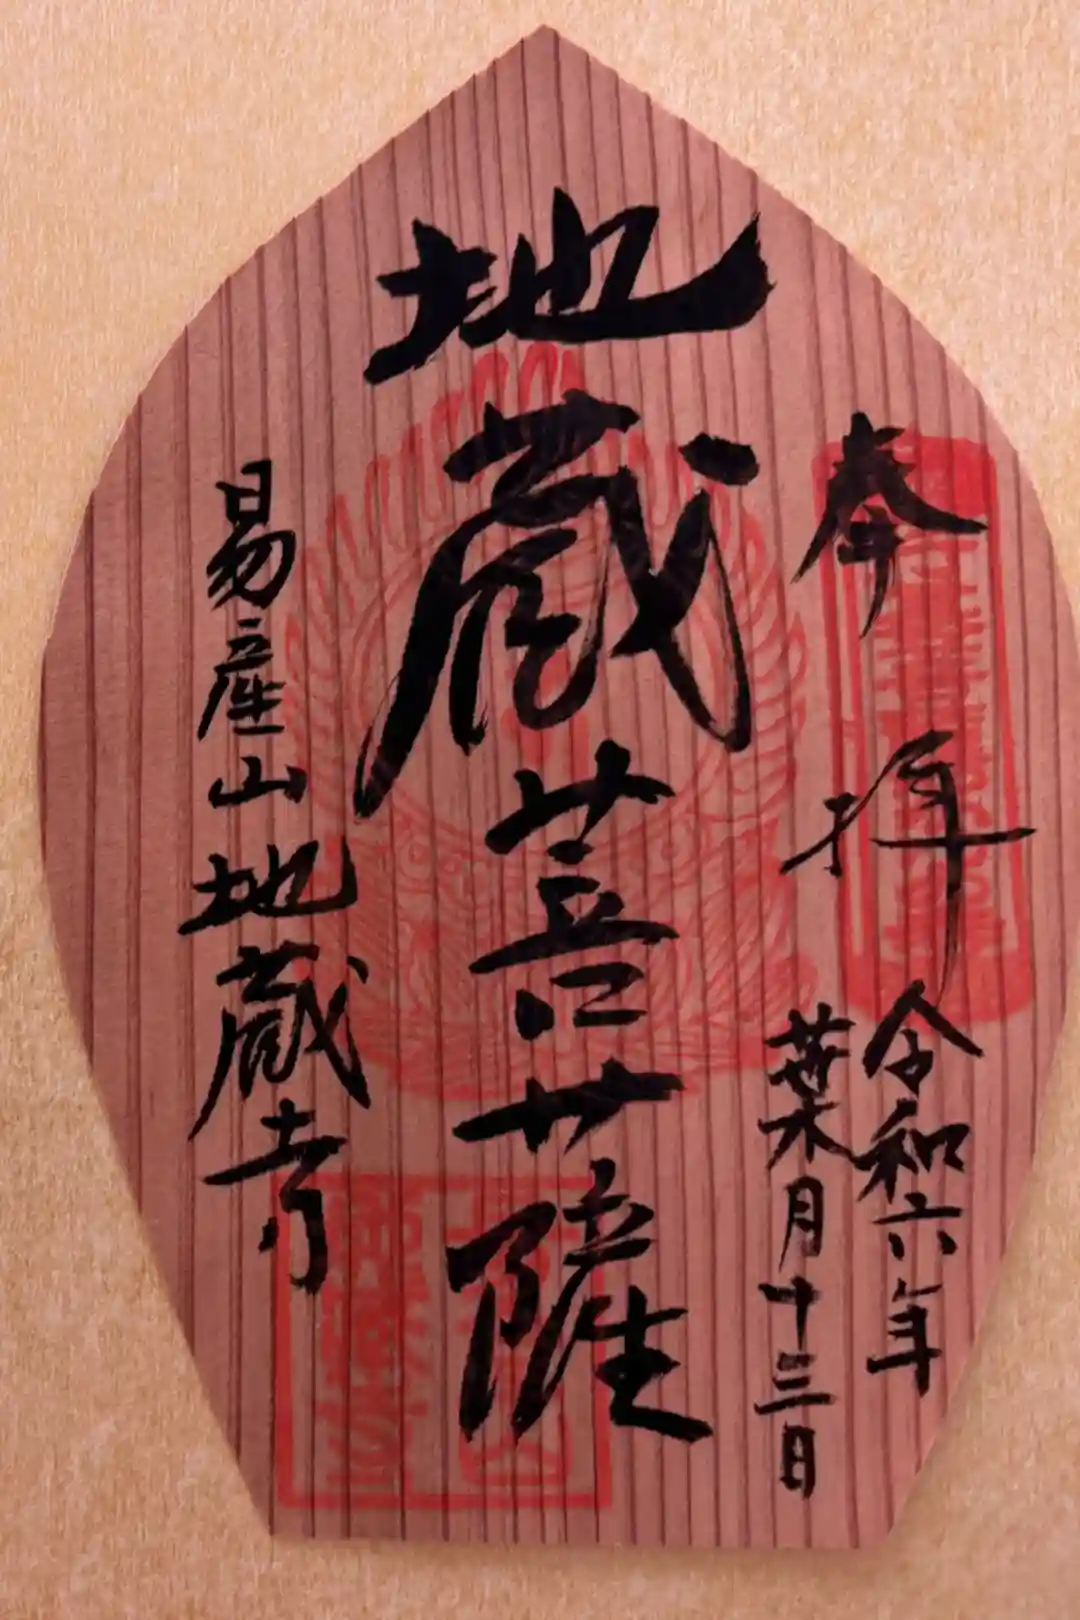 奉拝
令和六年
葉月十三日
地蔵菩薩
易産山地蔵寺